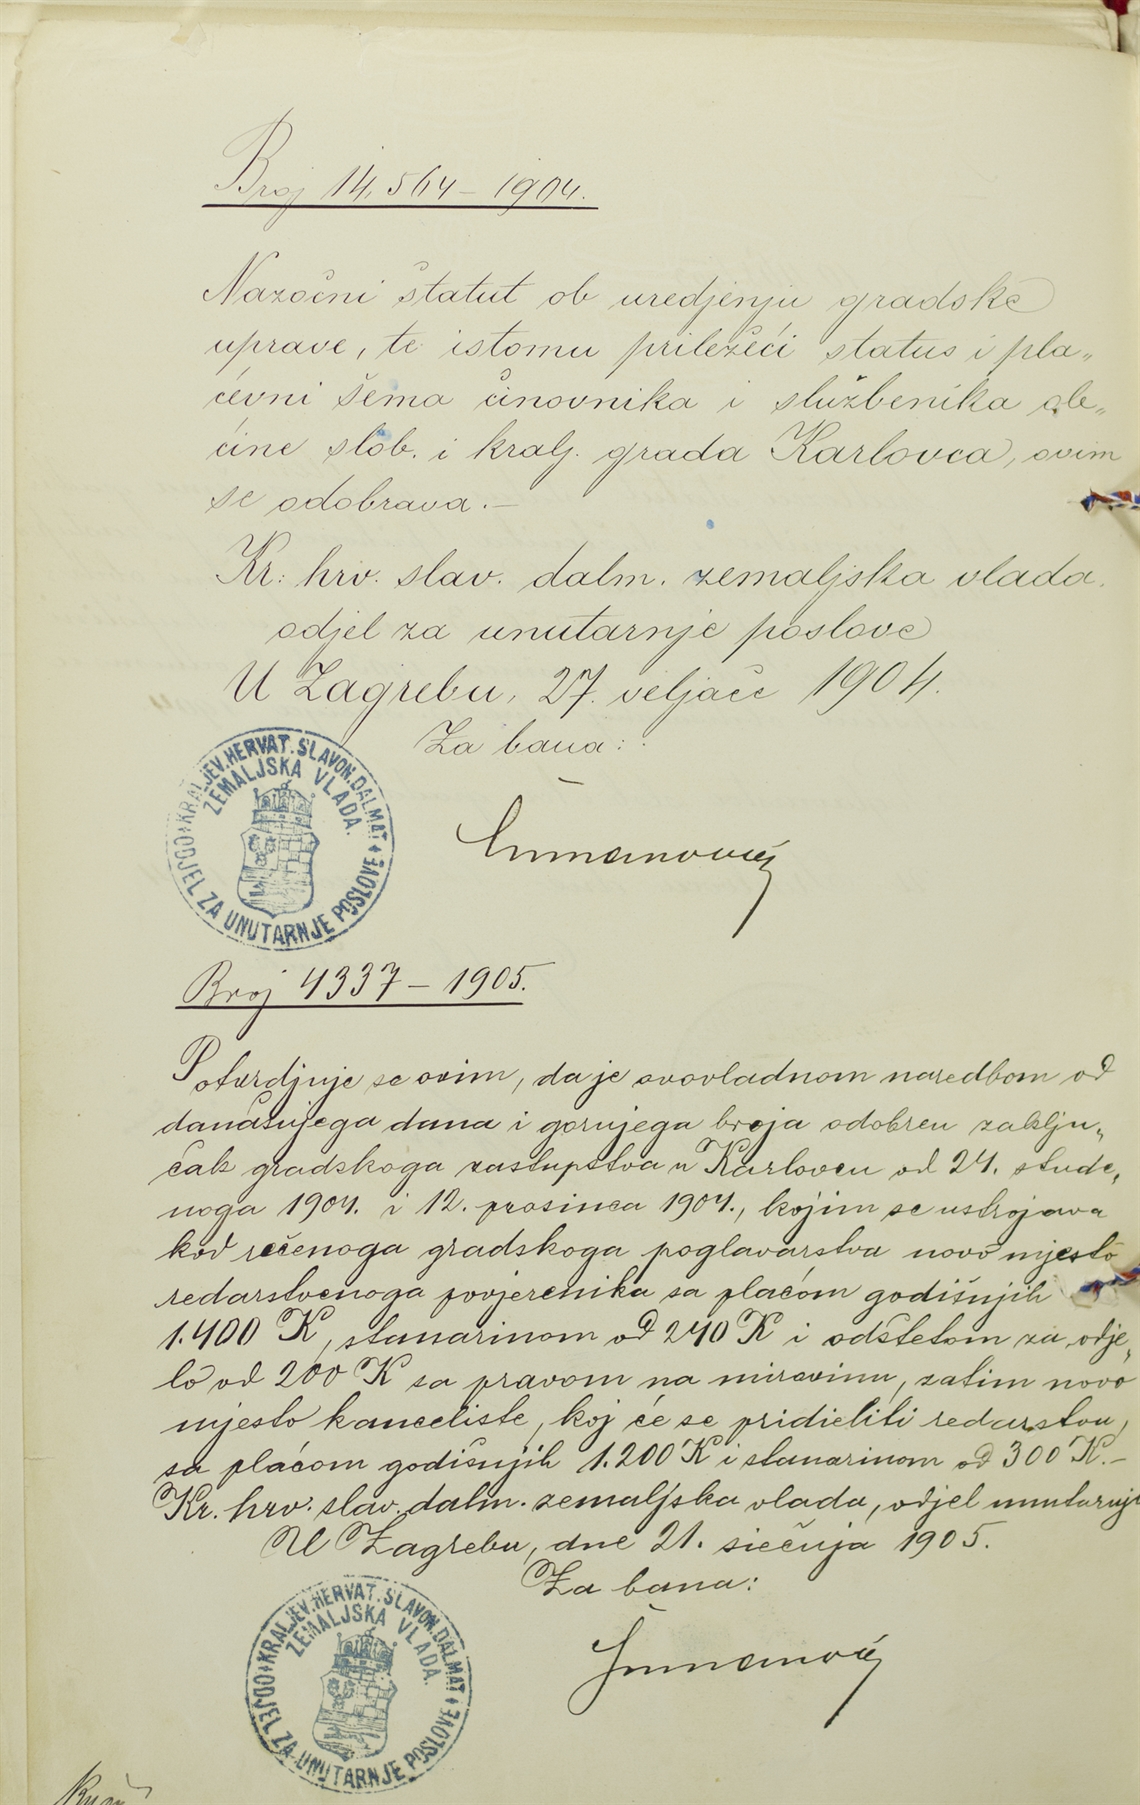 Broj 14.564 – 1904.
Nazočni štatut ob uredjenju gradske
uprave, te istomu priležeći status i pla„
ćevni šema činovnika i službenika ob„
ćine slob. i kralj. grada Karlovca, ovim
se odobrava. –
Kr. hrv. slav. dalm. zemaljska vlada.
odjel za unutarnje poslove
U Zagrebu, 27. veljače 1904.
Za bana:
KRALJEV. HERVAT. SLAVON. DALMAT
ZEMALJSKA VLADA.
ODJEL ZA UNUTARNJE POSLOVE
Broj 4337 – 1905.
Potvrdjuje se ovim, da je ovovladnom naredbom od
današnjega dana i gornjega broja odobren zaklju„
čak gradskoga zastupstva u Karlovcu od 24. stude„
noga 1904. i 12. prosinca 1904., kojim se ustrojava
kod rečenoga gradskoga poglavarstva novo mjesto
redarstvenoga povjerenika sa plaćom godišnjih
1.400 K, stanarinom od 240 K i odštetom za odje„
lo od 200 K sa pravom na mirovinu, zatim novo
mjesto kanceliste, koj će se pridieliti redarstvu,
sa plaćom godišnjih 1.200 K i stanarinom od 300 K. –
Kr. hrv. slav. dalm. zemaljska vlada, odjel unutarnji
U Zagrebu, dne 21. siečnja 1905.
Za bana:
KRALJEV. HERVAT. SLAVON. DALMAT
ZEMALJSKA VLADA.
ODJEL ZA UNUTARNJE POSLOVE